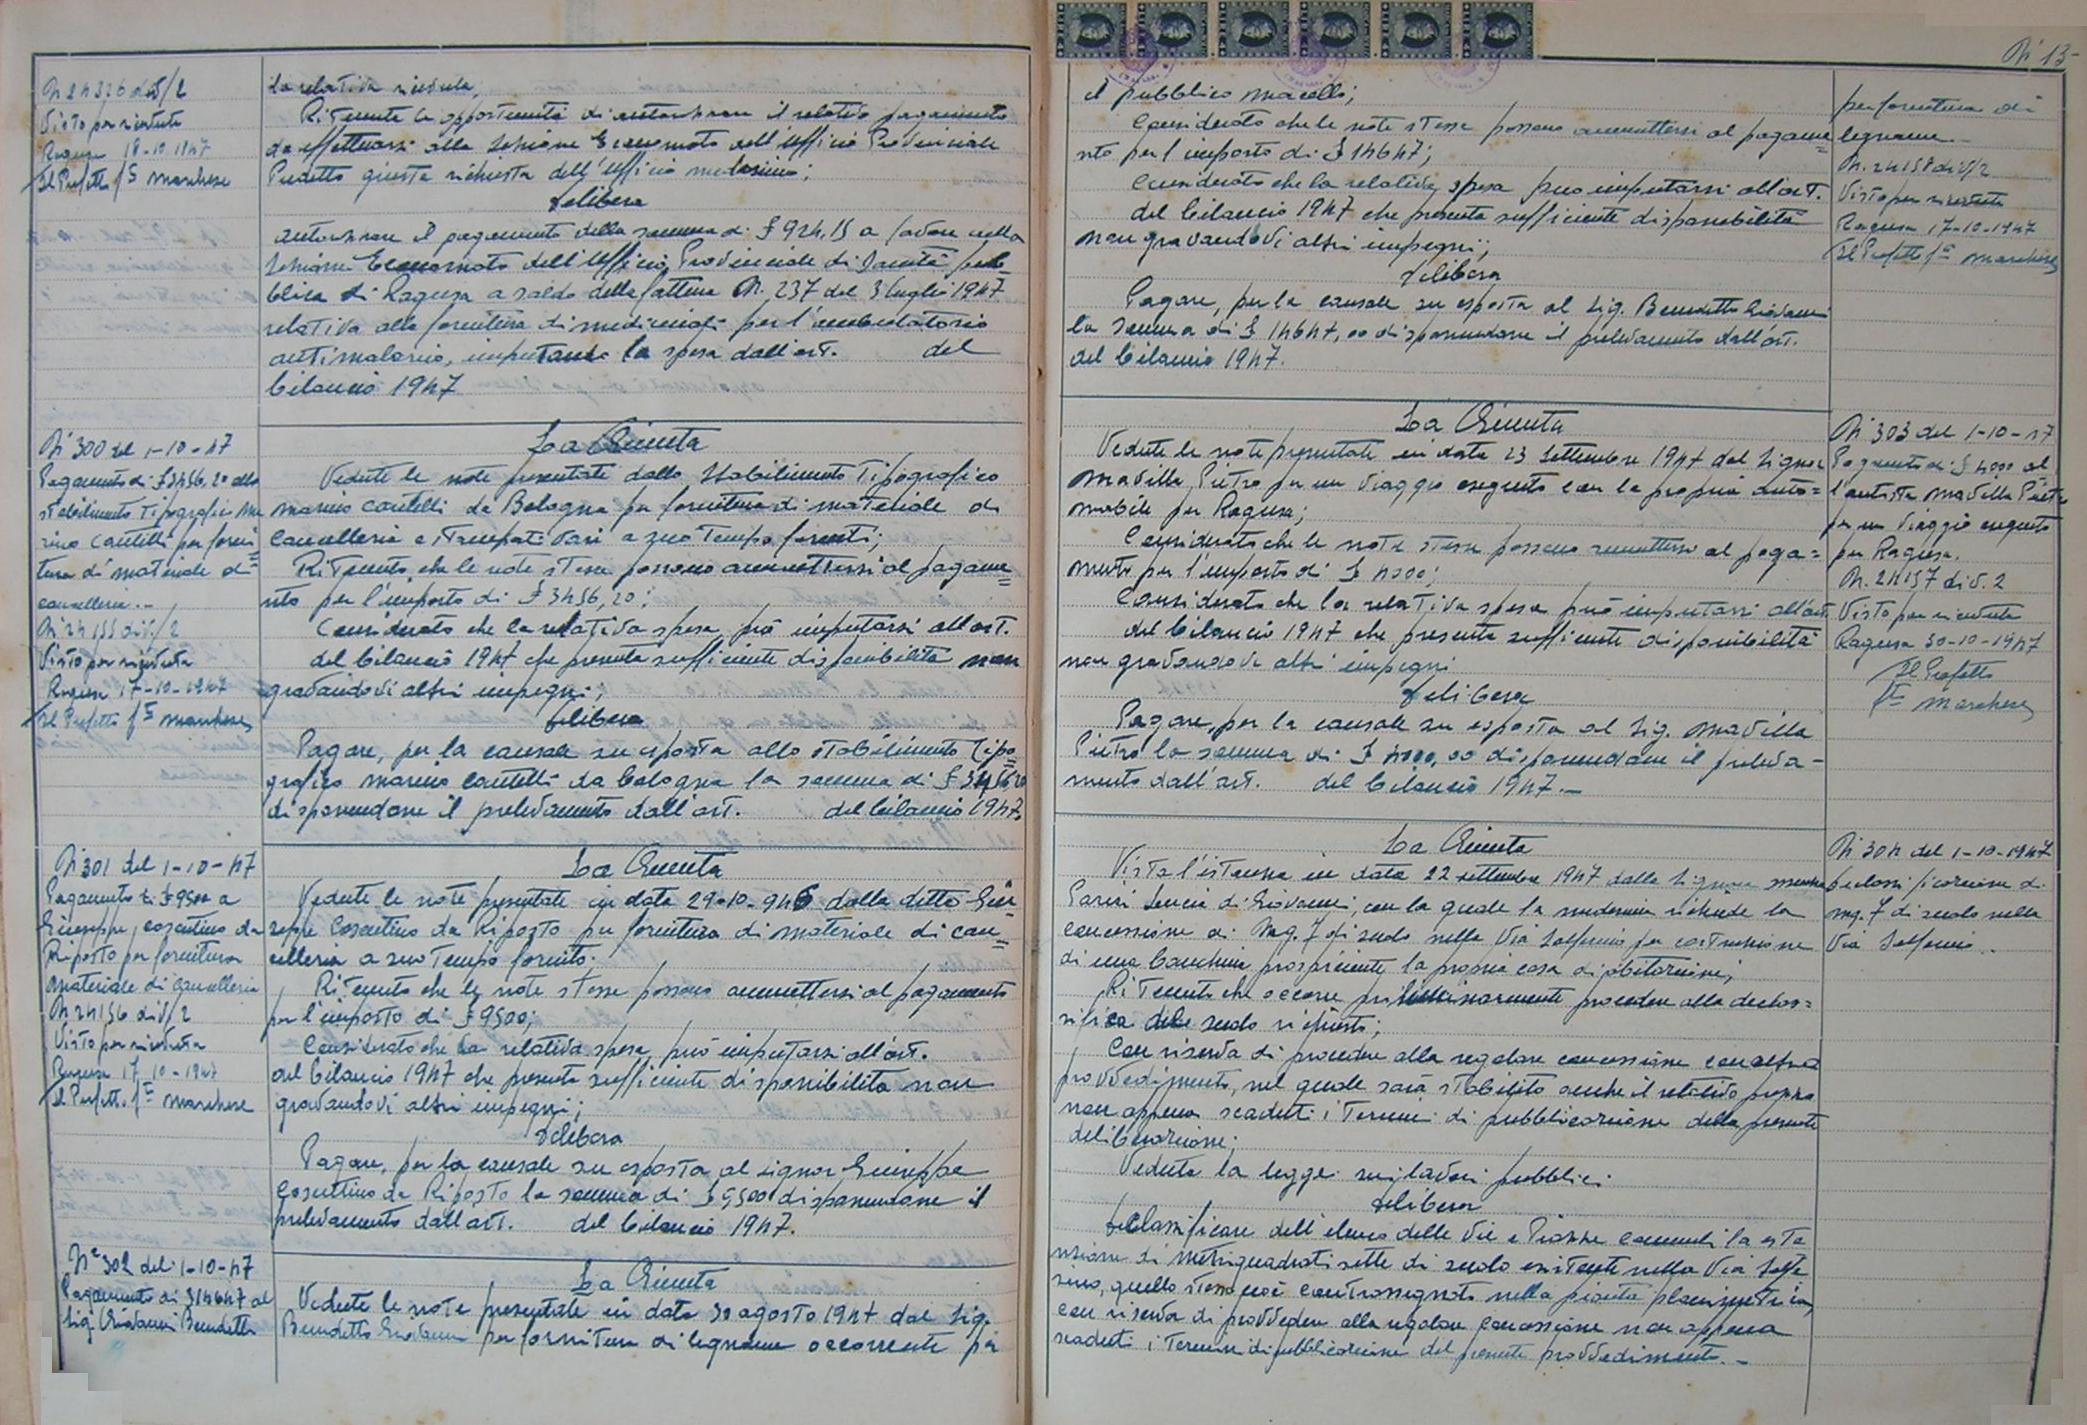 N 24326 div/2
Visto per ricevuta
Ragusa 18-10-1947
Il Prefetto fto Marchese
la relativa ricevuta;
Ritenuta la opportunità di autorizzare il relativo pagamento
da effettuarsi alla Sezione Economato dell'Ufficio Provinciale
Predetto giusta richiesta dell'Ufficio medesimo;
Delibera
autorizzare il pagamento della somma di £ 924,15 a favore della
Sezione Economato dell'Ufficio Provinciale di Sanità pub-
blica di Ragusa a saldo della fattura N. 237 del 3 luglio 1947
relativa alla fornitura di medicinali per l'ambulatorio
antimalarico, imputando la spesa dall'art. del
bilancio 1947
N° 300 del 1-10-47
Pagamento di £ 3456,20 allo
stabilimento Tipografico Ma
rino Cantelli per forni
tura di materiale di
cancelleria.-
N. 24155 div/2
Visto per ricevuta
Ragusa 17-10-1947
Il Prefetto fto Marchese
La Giunta
Vedute le note presentate dallo Stabilimento Tipografico
Marino Cantelli da Bologna per fornitura di materiale di
Cancelleria e stampati vari a suo tempo forniti;
Ritenuto che le note stesse possono ammettersi al pagame=
nto per l'importo di £ 3456,20;
Considerato che la relativa spesa può imputarsi all'art.
del bilancio 1947 che presenta sufficiente disponibilità non
gravandovi altri impegni;
Delibera
Pagare, per la causale su esposta allo stabilimento Tipo=
grafico Marino Cantelli da Bologna la somma di £ 3456,20
disponendone il prelevamento dall'art. del bilancio 1947.
N° 301 del 1-10-47
Pagamento di £ 9500 a
Giuseppe Cosentino da
Riposto per fornitura
materiale di Cancelleria
N. 24156 div/2
Visto per ricevuta
Ragusa 17-10-1947
Il Prefetto fto Marchese
La Giunta
Vedute le note presentate in data 29-10-946 dalla ditta Giu=
seppe Cosentino da Riposto per fornitura di materiale di can=
celleria a suo tempo fornito.
Ritenuto che le note stesse possono ammettersi al pagamento
per l'importo di £ 9500;
Considerato che la relativa spesa può imputarsi all'art.
del bilancio 1947 che presenta sufficiente disponibilità non
gravandovi altri impegni;
Delibera
Pagare, per la causale su esposta al signor Giuseppe
Cosentino da Riposto la somma di £ 9,500 disponendone il
prelevamento dall'art. del bilancio 1947.
N° 302 del 1-10-47
Pagamento di £ 14647 al
Sig. Giovanni Benedetto
La Giunta
Vedute le note presentate in data 30 agosto 1947 dal Sig.
Benedetto Giovanni per fornitura di legname occorrente per
N° 13-
il pubblico macello;
Considerato che le note stesse possono ammettersi al pagame=
nto per l'importo di £ 14647;
Considerato che la relativa spesa può imputarsi all'art.
del bilancio 1947 che presenta sufficiente disponibilità
non gravandovi altri impegni;
Delibera
Pagare, per la causale su esposta al Sig. Benedetto Giovanni
la somma di £ 14647,00 disponendone il prelevamento dall'art.
del bilancio 1947.
per fornitura di
legname.-
N. 24158 div/2
Visto per ricevuta
Ragusa 17-10-1947
Il Prefetto fto Marchese
La Giunta
Vedute le note presentate in data 23 Settembre 1947 dal Signor
Mavilla Pietro per un viaggio eseguito con la propria auto=
mobile per Ragusa;
Considerato che le note stesse possono ammettersi al paga=
mento per l'importo di £ 4000;
Considerato che la relativa spesa può imputarsi all'art.
del bilancio 1947 che presenta sufficiente disponibilità
non gravandovi altri impegni
Delibera
Pagare, per la causale su esposta al Sig. Mavilla
Pietro la somma di £ 4000,00 disponendone il preleva-
mento dall'art. del bilancio 1947.-
N° 303 del 1-10-47
Pagamento di £ 4000 al
l'autista Mavilla Pietro
per un viaggio eseguito
per Ragusa.
N. 24157 div. 2
Visto per ricevuta
Ragusa 30-10-1947
Il Prefetto
fto Marchese
La Giunta
Vista l'istanza in data 22 settembre 1947 della Signora
Parisi Lucia di Giovanni, con la quale la medesima richiede la
concessione di Mq. 7 di suolo nella Via Solferino per costruzione
di una banchina prospiciente la propria casa di abitazione;
Ritenuto che occorre preliminarmente procedere alla declas=
sifica del suolo richiesto;
Con riserva di procedere alla regolare concessione con altro
provvedimento, nel quale sarà stabilito anche il relativo prezzo
non appena scaduti i termini di pubblicazione della presente
deliberazione;
Veduta la legge sui lavori pubblici.
Delibera
Declassificare dall'elenco delle Vie e Piazze comunali la este
nzione di metriquadrati sette di suolo esistente nella Via Solfe
rino, quello stesso contrassegnato nella pianta planimetrica,
con riserva di provvedere alla regolare concessione non appena
scaduti i termini di pubblicazione del presente provvedimento.-
N° 304 del 1-10-1947
Declassificazione di
mq. 7 di suolo nella
Via Solferino.-